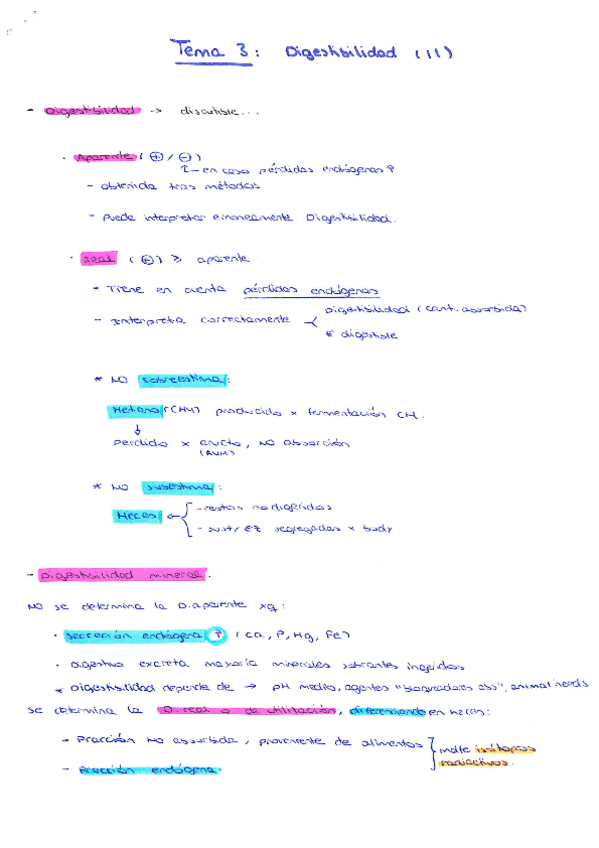 Tema 3: Digestibilidad (II)
- Digestibilidad → discutible...
· Aparente (+/-)
en caso pérdidas endógenas ↑
- obtenida tras métodos
- Puede interpretar erróneamente Digestibilidad.
· real (+) ≥ aparente
- Tiene en cuenta pérdidas endógenas
- Interpreta correctamente
digestibilidad (cant. absorbida)
E digestible
* NO sobreestima:
Metano (CH4) producido x fermentación CH.
↓
perdido x eructo, NO absorción
(RUM)
* NO subestima:
Heces
- restos no digeridos
- sust/ EZ segregadas x body
- Digestibilidad mineral.
NO se determina la D.aparente xq:
· secreción endógena ↑ (Ca, P, Mg, Fe)
· digestivo excreta mayoría minerales sobrantes ingeridos
* Digestibilidad depende de → pH medio, agentes "bloqueadores abs", animal needs
se determina la D.real o de utilización, diferenciando en heces:
- Fracción NO absorbida, proveniente de alimentos
- Fracción endógena
mdte isótopos
radiactivos.